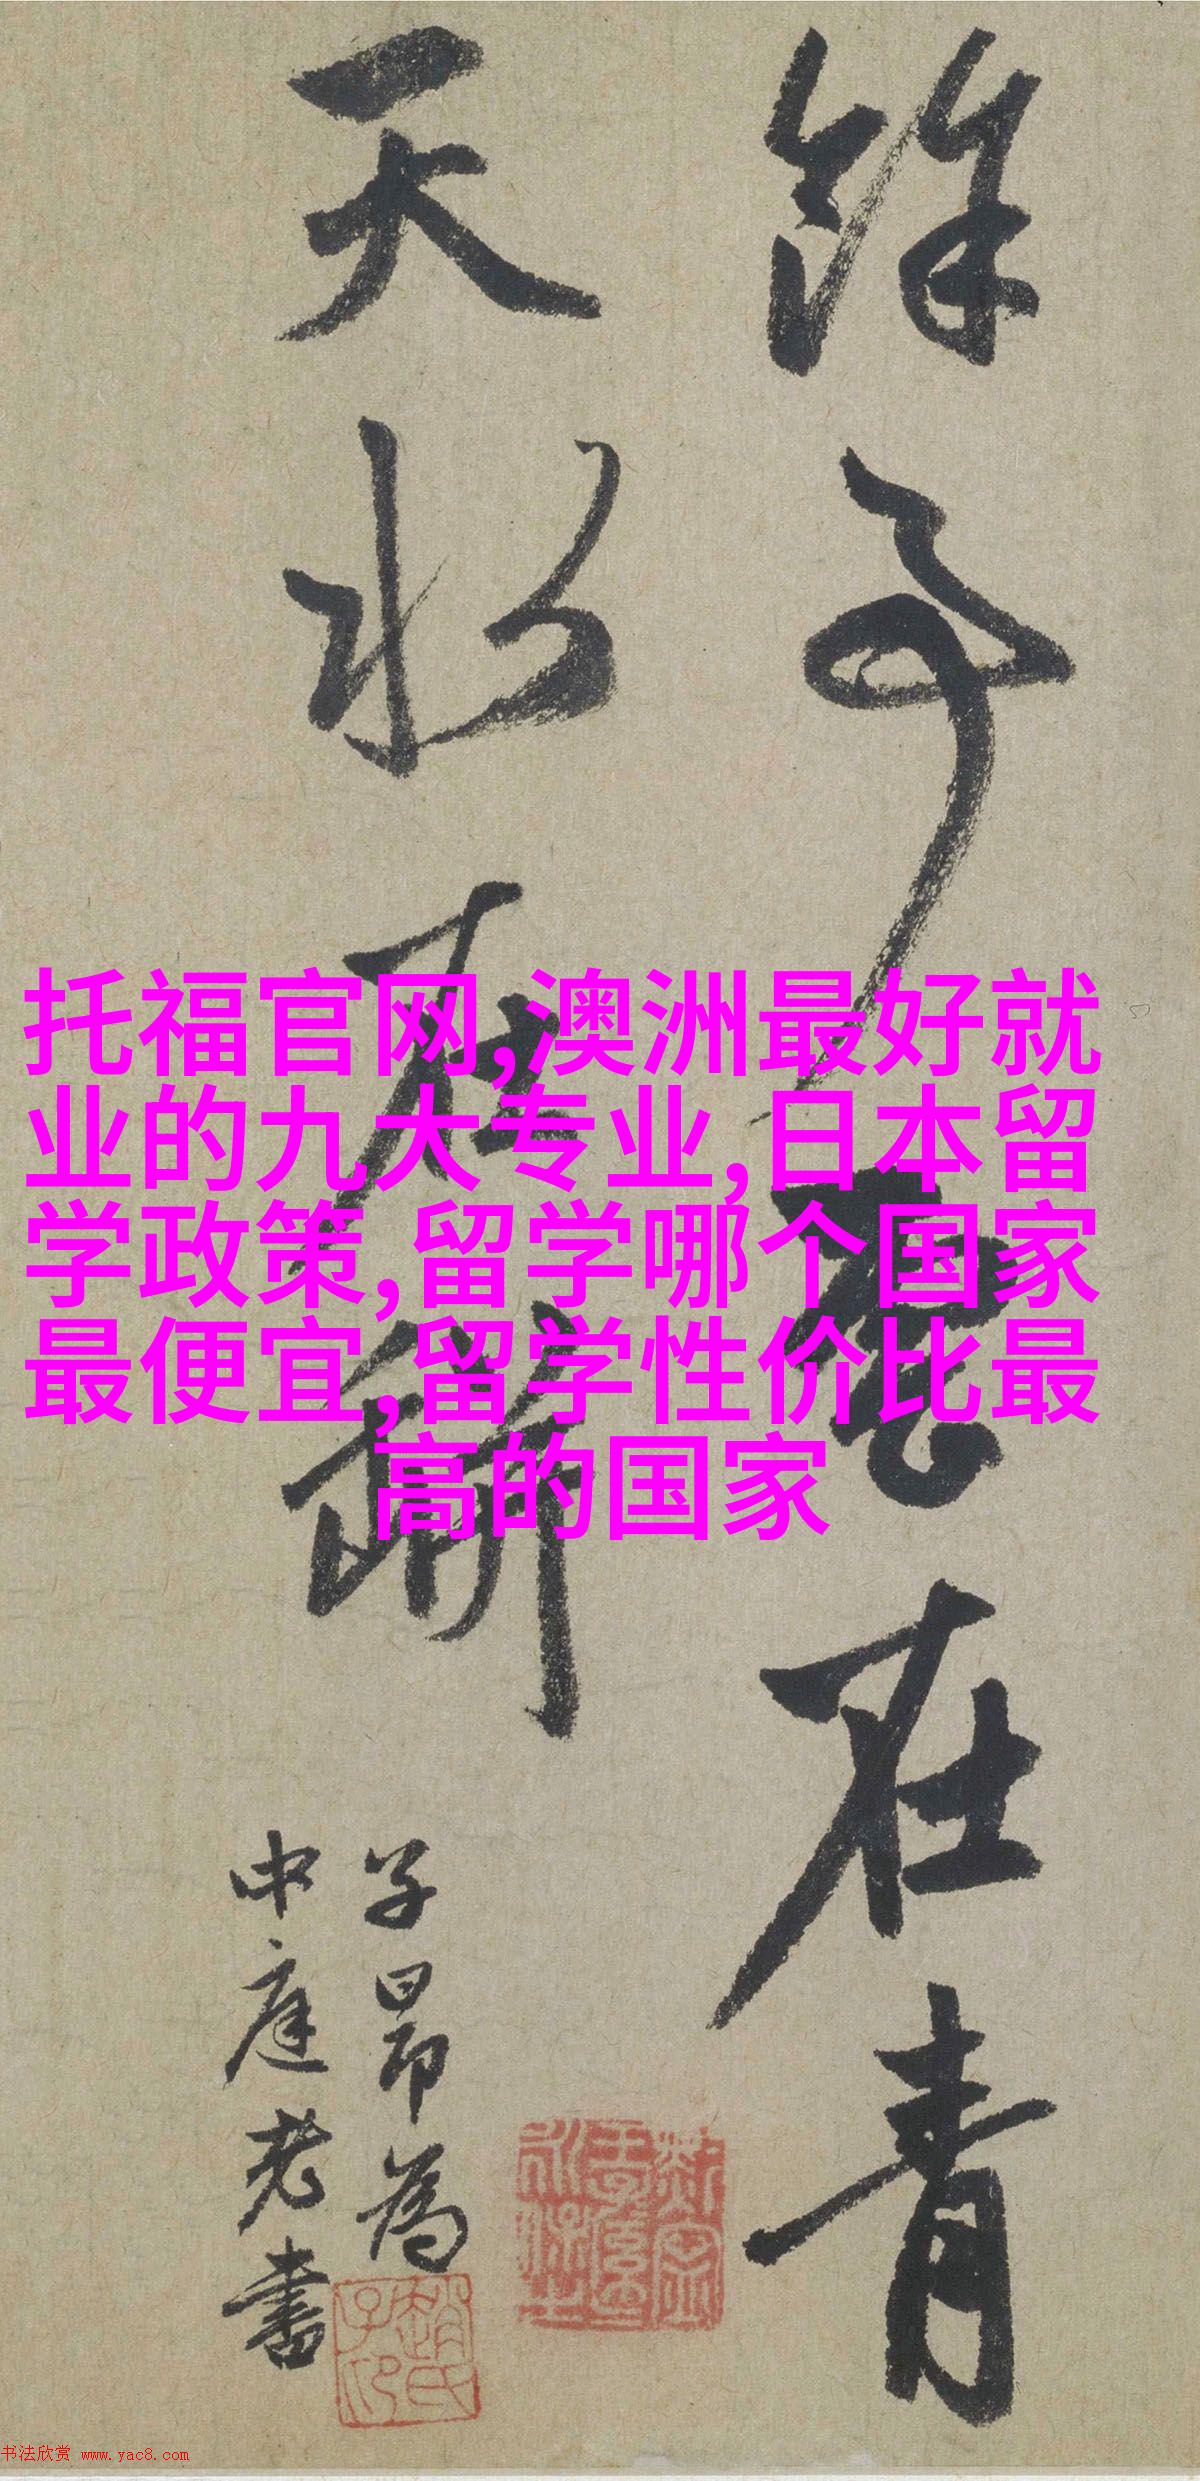 餘事雲在青
天水在瓶
子昂為
中庭老書
托福官网,澳洲最好就
业的九大专业,日本留
学政策,留学哪个国家
最便宜,留学性价比最
高的国家
趙氏子印
书法欣赏 www.yac8.com